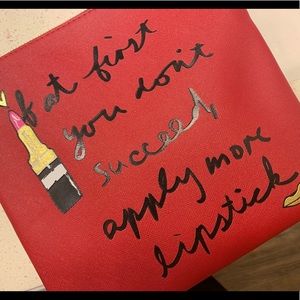 If at first
you don't
succeed
apply more
lipstick